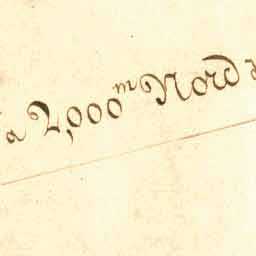 a 2,000m Nord